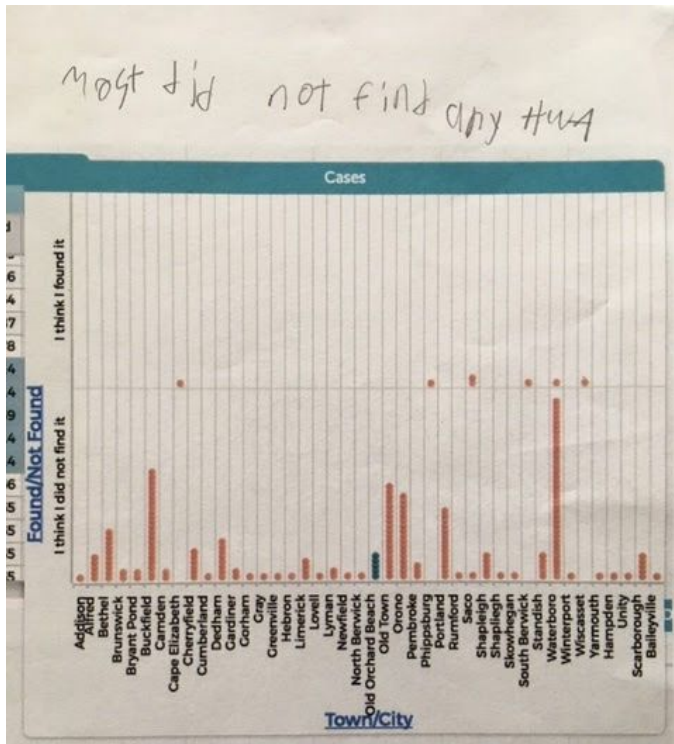 most did not find any HWA
Cases
I think I found it
I think I did not find it
Found/Not Found
6
4
7
8
4
4
9
4
4
6
5
5
5
5
Addison
Alfred
Bethel
Brunswick
Bryant Pond
Buckfield
Camden
Cape Elizabeth
Cherryfield
Cumberland
Dedham
Gardiner
Gorham
Gray
Greenville
Hebron
Limerick
Lovell
Lyman
Newfield
North Berwick
Old Orchard Beach
Old Town
Orono
Pembroke
Phippsburg
Portland
Rumford
Saco
Shapleigh
Shapliegh
Skowhegan
South Berwick
Standish
Waterboro
Winterport
Wiscasset
Yarmouth
Hampden
Unity
Scarborough
Baileyville
Town/City